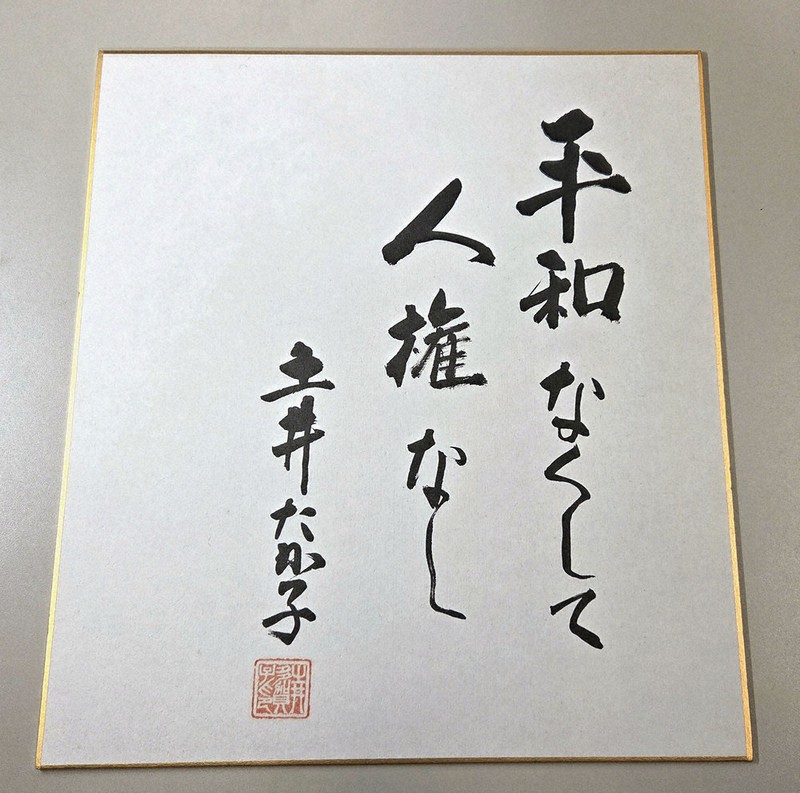 平和なくして
人権なし
土井たか子